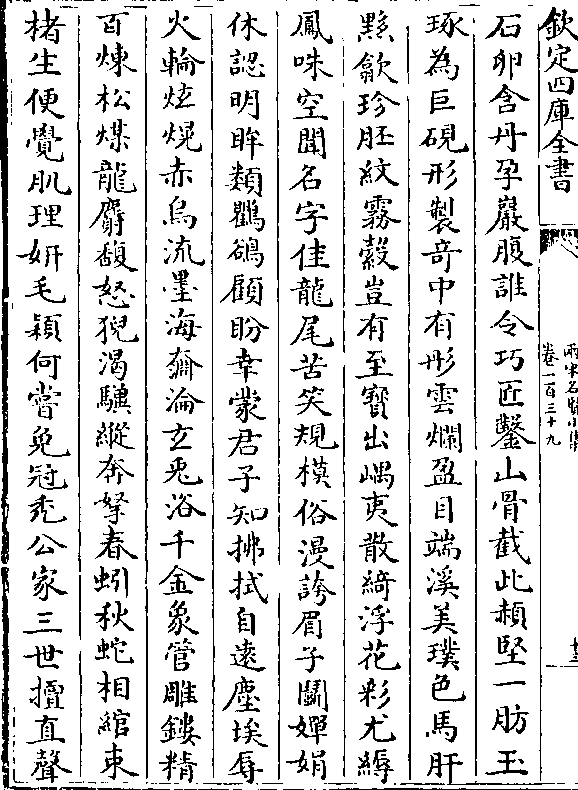 欽定四庫全書
兩宋名賢小集
卷一百三十九
石卵含丹孕巖腹誰令巧匠鑿山骨截此赬堅一肪玉
琢為巨硯形製竒中有彤雲爛盈目端溪美璞色馬肝
黟歙珍胚紋霧縠豈有至寳出嵎夷散綺浮花彩尤縟
鳳咮空聞名字佳龍尾苦笑規模俗漫誇眉子鬭嬋娟
休認明眸類鸜鵒顧盼幸蒙君子知拂拭自遠塵埃辱
火輪炫熀赤烏流墨海奫淪𤣥兎浴千金象管雕鏤精
百煉松煤龍麝馥怒猊渴驥縱奔拏春蚓秋蛇相綰束
楮生便覺肌理妍毛穎何嘗免冠禿公家三世擅直聲